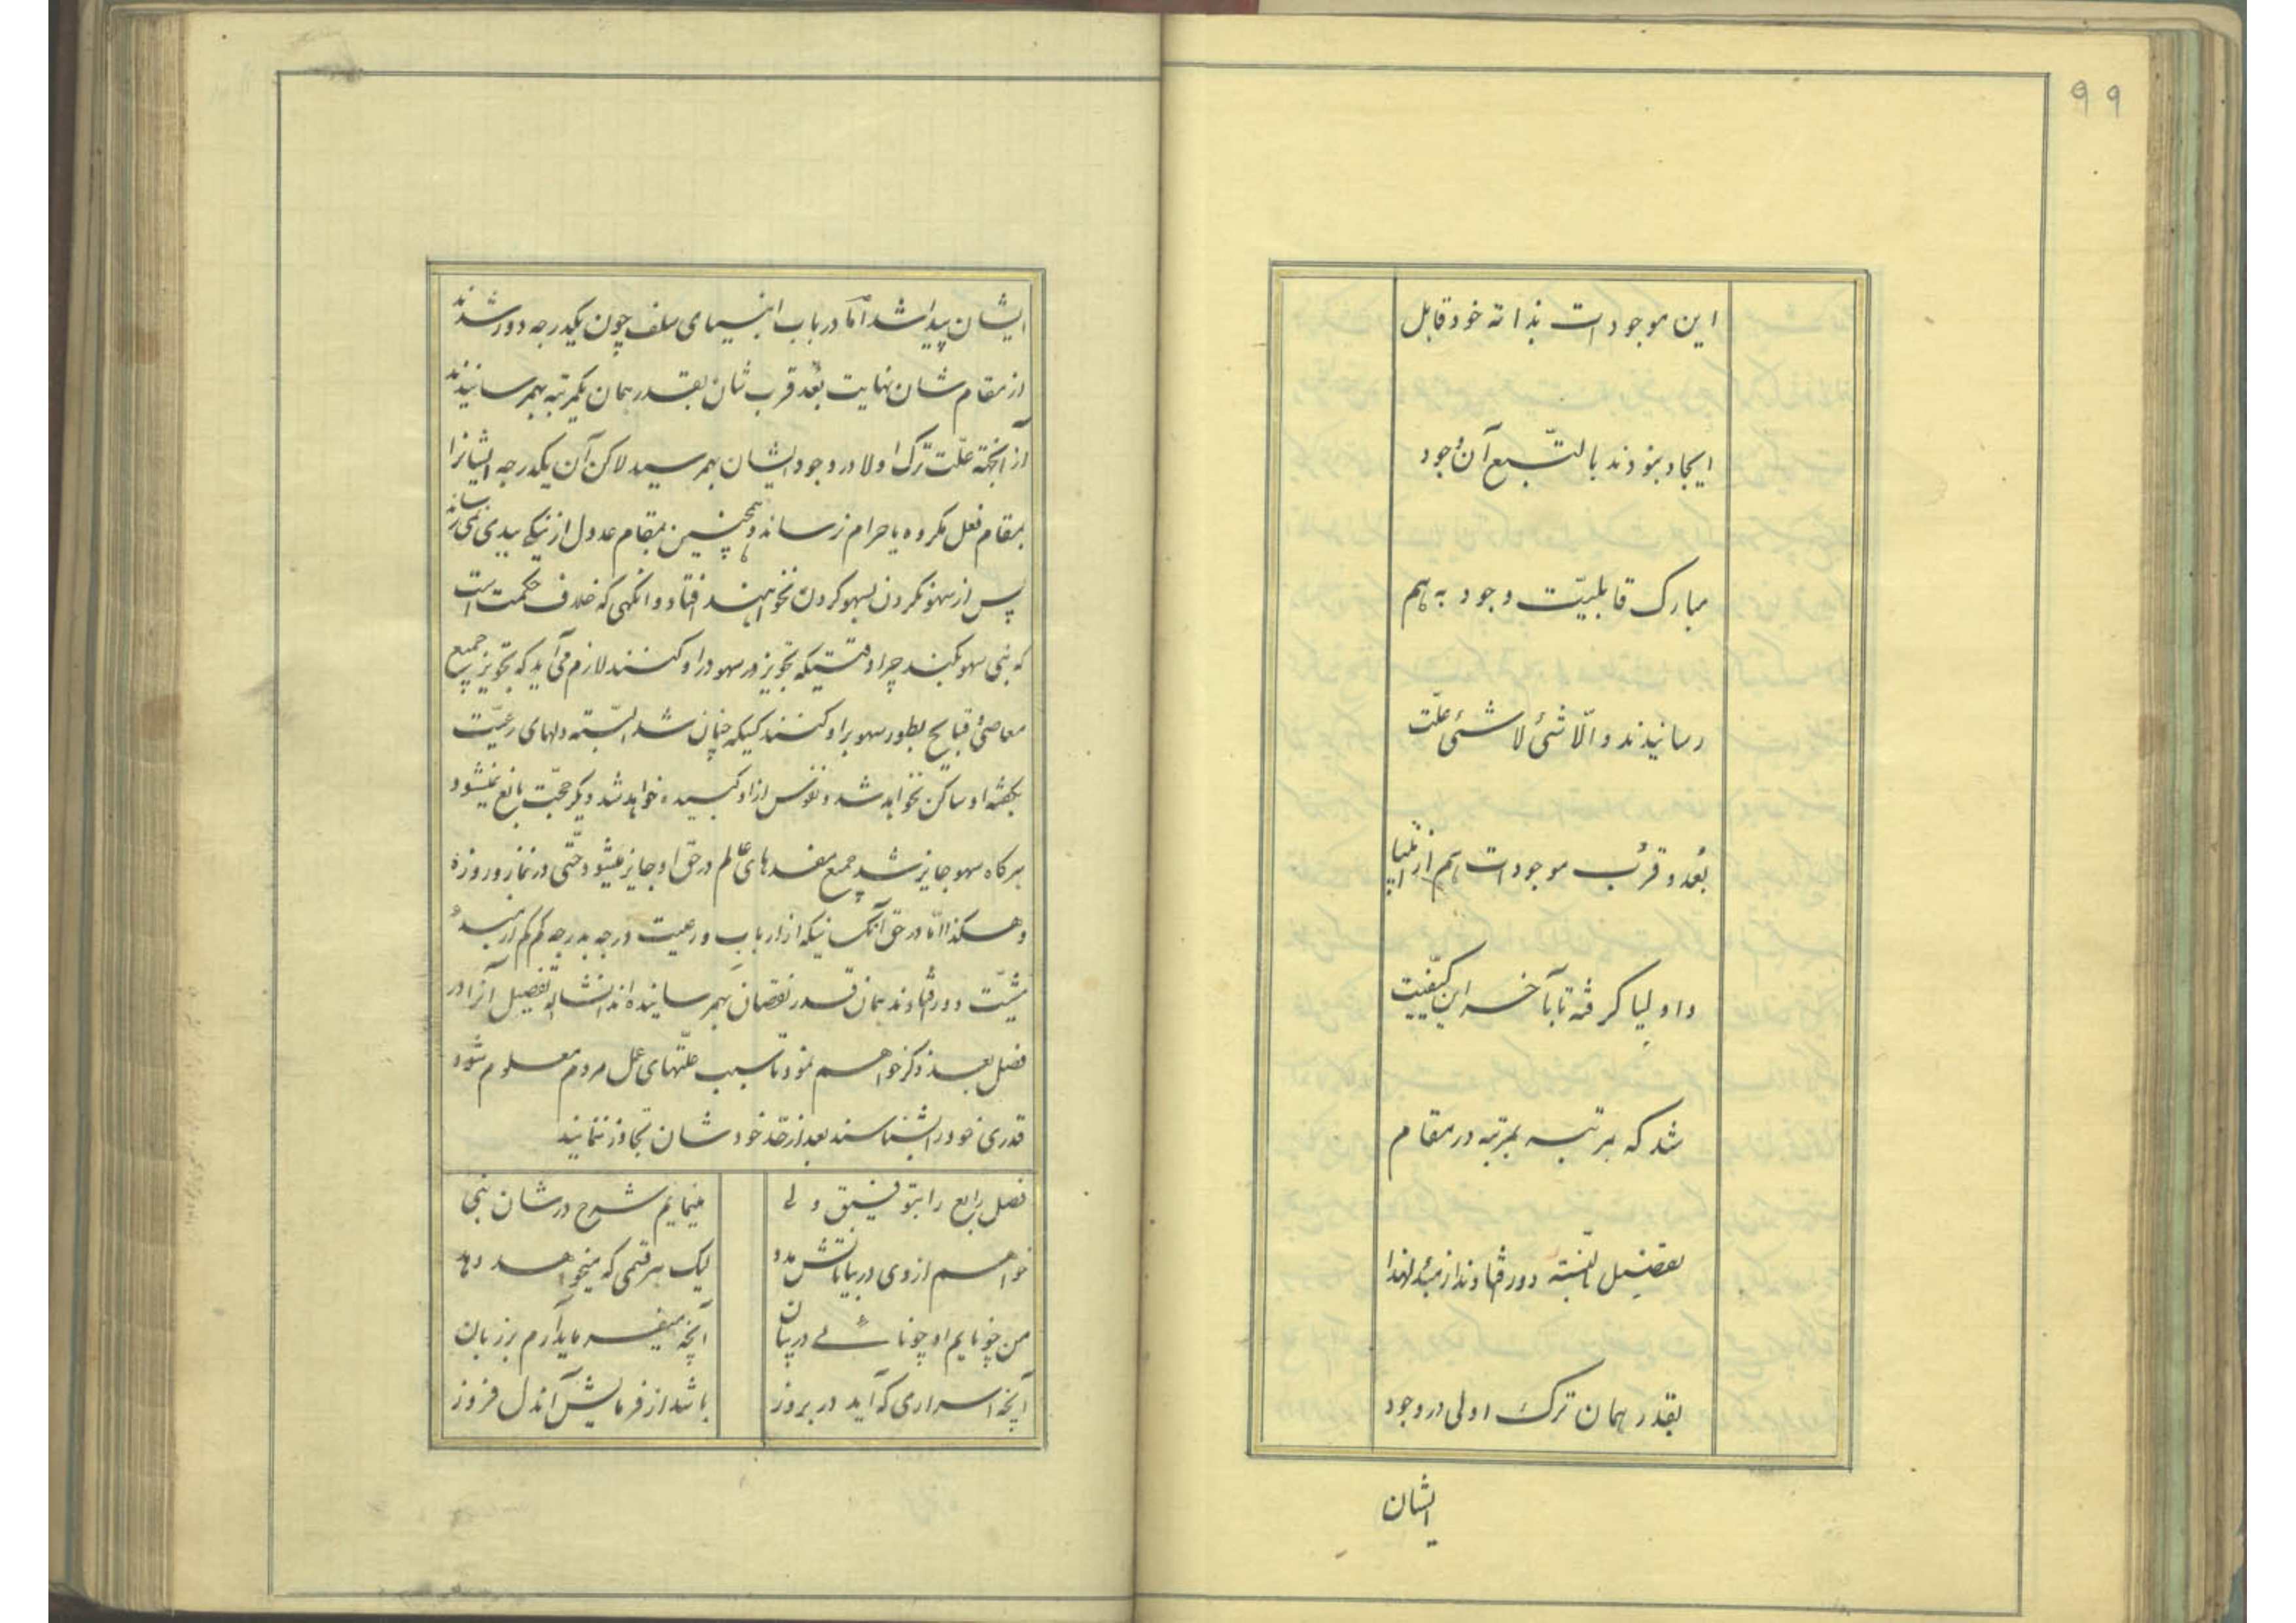 ۹۹
این موجودات بذاته خود قابل
ایجاد بنودند بالتّبع آن وجود
مبارک قابلیّت وجود به هم
رسانیدند و الّا شئ لا شئ علّت
بُعد و قرُب موجودات هم از انبیا
و اولیا گرفته تا بآخر این کیفیّت
شد که بمرتبه بمرتبه در مقام
تفضیل دور فتادند از مبدء لهذا
بقدر همان ترک اولی در وجود
ایشان
ایشان پیدا شد امّا در باب انبیای سلف چون یکدرجه دور شدند
از مقام شان نهایت بُعد قرب شان بقدر همان یکمرتبه بهمرسانیدند
از آنجهته علّت ترک اولا در وجود ایشان بهمرسید لاکن آن یکدرجه ایشانرا
بمقام فعل مکروه یا حرام نرساند و همچنین بمقام عدول از نیکی ببدی نمی رساند
پس از سهو نکردن بسهو کردن نخواهند افتاد و انگهی که خلاف حکمت است
که نبی سهو بکند چرا وقتیکه تجویز در سهو در او کنند لازم می آید که تجویز جمیع
معاصی و قبایح بطور سهو بر او کنند کسیکه چنان شد البتّه دلهای رعیّت
بگفته او ساکن نخواهد شد و نفوس از او کبیده خواهد شد دیگر حجّت بالغ نمیشود
هرکاه سهو جایز شد جمیع مفسدهای عالم در حق او جایز میشود حتّی در نماز و روزه
و هکذا امّا در حق آنکسانیکه از ارباب و رعیت درجه بدرجه کم کم از مبدء
مشیّت دور فتادند همان قدر نقصان بهمرسانیده اند انشاالله تفصیل آنرا در
فصل بعد ذکر خواهم نمود تا سبب علّتهای عمل مردم معلوم شود
قدری خود را بشناسند بعد از حدّ خودشان تجاوز ننمایند
فصل رابع را بتوفیق ولی
مینمایم شرح در شان نبی
خواهم از وی در بیاناتش مدد
لیک هر قسمی که میخواهد دهد
من چو نایم او چو نائی در بیان
آنچه میفرماید آرم بر زبان
آنچه اسراری که آید در بروز
باشد از فرمایش آندل فروز